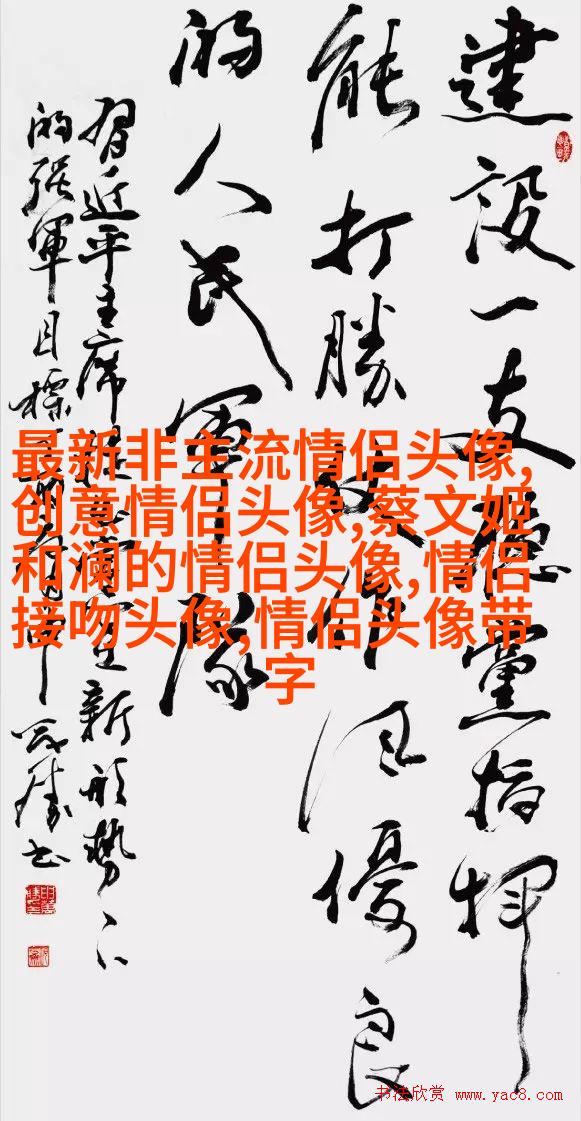 建設一支聽黨指揮
能打勝作風優良
的人民軍隊
習近平主席新形勢下
的强軍目標
书
最新非主流情侣头像,
创意情侣头像,蔡文姬
和澜的情侣头像,情侣
接吻头像,情侣头像带
字
书法欣赏 www.yac8.com